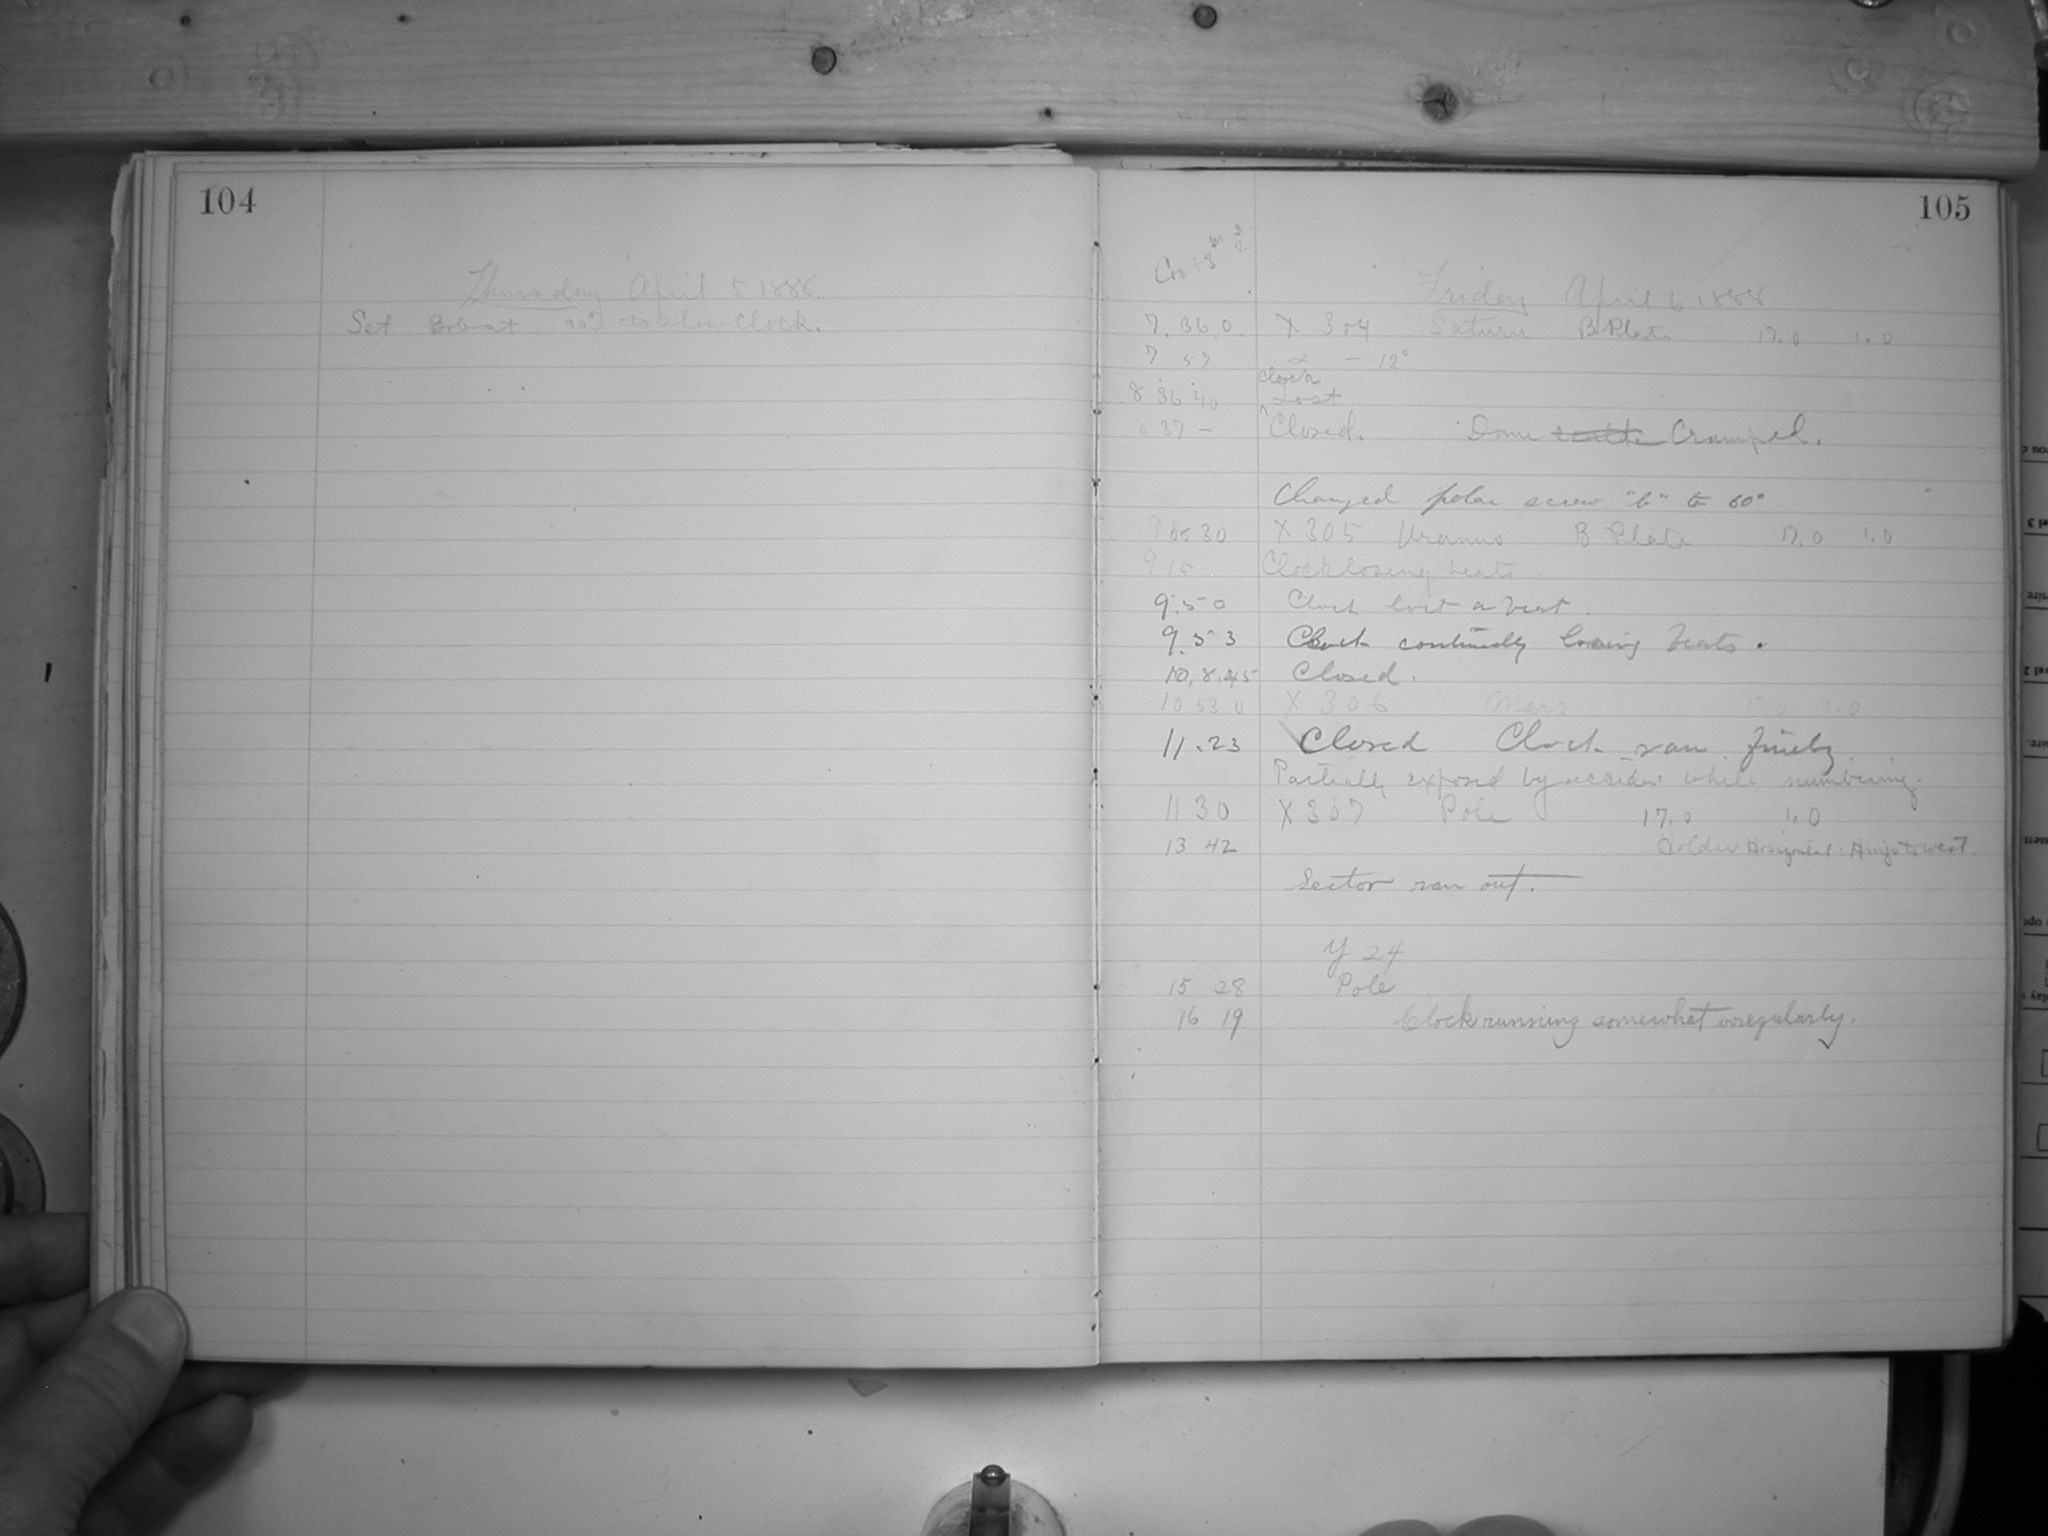 104
Thursday April 5 1888.
Set 90° to slow Clock.
105
Friday April 6 1888
7. 36 0. X 304 Saturn B Plate 17.0 1.0
7 57 - 12°
Clock
8 36 40 Lost
37 - Closed. Dome Cramped.
Changed polar screw "b" to 60°
30 X 305 Uranus B Plate 17.0 1.0
9 15 Clock losing beats.
9.50 Clock lost a beat.
9.53 Clock continually losing beats.
10.8.45 Closed.
10 53 0 X 306 Mars 17.0 1.0
11.23 Closed Clock ran finely
Partially exposed by accident while numbering.
11 30 X 307 Pole 17.0 1.0
13 42
Sector ran out.
Y 24
15 28 Pole
16 19 Clock running somewhat irregularly.